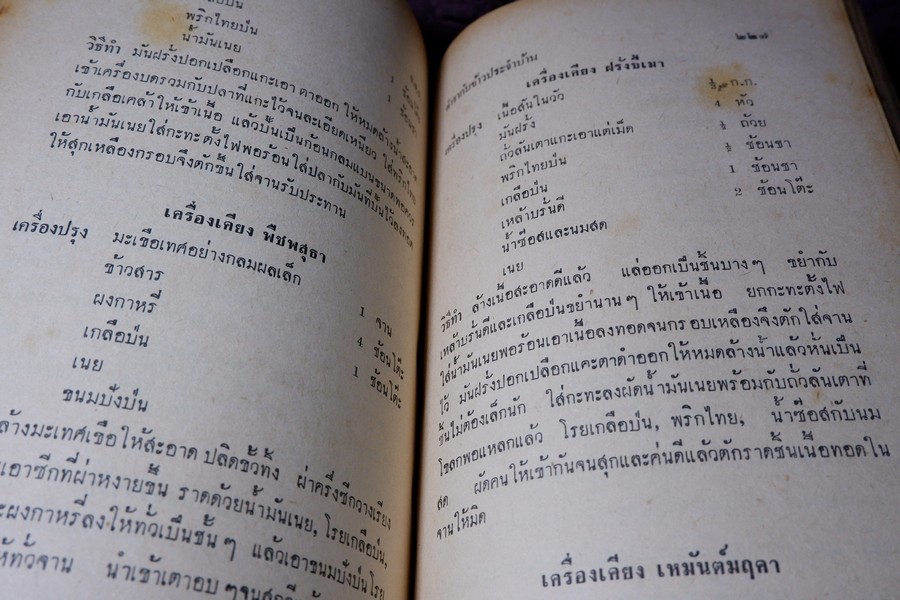 พริกไทยป่น
น้ำมันเนย
วิธีทำ มันฝรั่งปอกเปลือกแกะเอา ตาออก ให้หมดล้างน้ำ
เข้าเครื่องบดรวมกับปลาที่แกะไว้จนละเอียดเหนียว ใส่พริกไทย
กับเกลือเคล้าให้เข้าเนื้อ แล้วปั้นเป็นก้อนกลมแบนขนาด
เอาน้ำมันเนยใส่กะทะตั้งไฟพอร้อนใส่ปลากับมันที่ปั้นไว้ลงทอด
ให้สุกเหลืองกรอบจึงตักขึ้นใส่จานรับประทาน
เครื่องเคียง พืชพสุธา
เครื่องปรุง มะเขือเทศอย่างกลมผลเล็ก
ข้าวสาร 1 จาน
ผงกาหรี่ 4 ช้อนโต๊ะ
เกลือป่น 1 ช้อนโต๊ะ
เนย
ขนมปังป่น
ล้างมะเทศเขือให้สะอาด ปลิดขั้วทิ้ง ผ่าครึ่งซีกวางเรียง
เอาซีกที่ผ่าหงายขึ้น ราดด้วยน้ำมันเนย, โรยเกลือป่น,
ผงกาหรี่ลงให้ทั่วเป็นชั้น ๆ แล้วเอาขนมปังป่นโรย
ให้ทั่วจาน นำเข้าเตาอบ
๒๒๗
ตำรากับข้าวประจำบ้าน
เครื่องเคียง ฝรั่งขี้เมา
เครื่องปรุง เนื้อสันในวัว ก.ก.
มันฝรั่ง 4 หัว
ถั่วลันเตาแกะเอาแต่เม็ด ½ ถ้วย
พริกไทยป่น ½ ช้อนชา
เกลือป่น 1 ช้อนชา
เหล้าบรั่นดี 2 ช้อนโต๊ะ
น้ำซ๊อสและนมสด
เนย
วิธีทำ ล้างเนื้อสะอาดดีแล้ว แล่ออกเป็นชิ้นบาง ๆ ขยำกับ
เหล้าบรั่นดีและเกลือป่นขยำนาน ๆ ให้เข้าเนื้อ ยกกะทะตั้งไฟ
ใส่น้ำมันเนยพอร้อนเอาเนื้อลงทอดจนกรอบเหลืองจึงตักใส่จาน
ไว้ มันฝรั่งปอกเปลือกแคะตาดำออกให้หมดล้างน้ำแล้วหั่นเป็น
ชิ้นไม่ต้องเล็กนัก ใส่กะทะลงผัดน้ำมันเนยพร้อมกับถั่วลันเตาที่
โขลกพอแหลกแล้ว โรยเกลือป่น, พริกไทย, น้ำซ๊อสกับนม
สด ผัดคนให้เข้ากันจนสุกและค่นดีแล้วตักราดชิ้นเนื้อทอดใน
จานให้มิด
เครื่องเคียง เหมันต์มฤคา